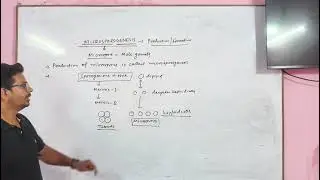 MICROSPOROGENESIS → Production/formation
Microspore - Male gamete
* Production of microspores is called microsporogenesis
* Sporogenous tissue diploid
Meiosis-I
Meiosis-II
Tetrads Microspores haploid cells